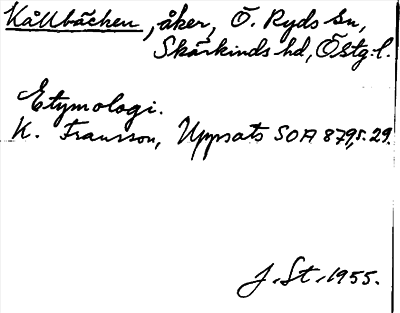 Källbäcken, åker, Ö. Ryds sn,
Skärkinds hd, Östg.l.
Etymologi.
K. Fransson, Uppsats SOA 879, s. 29.
J. St. 1955.